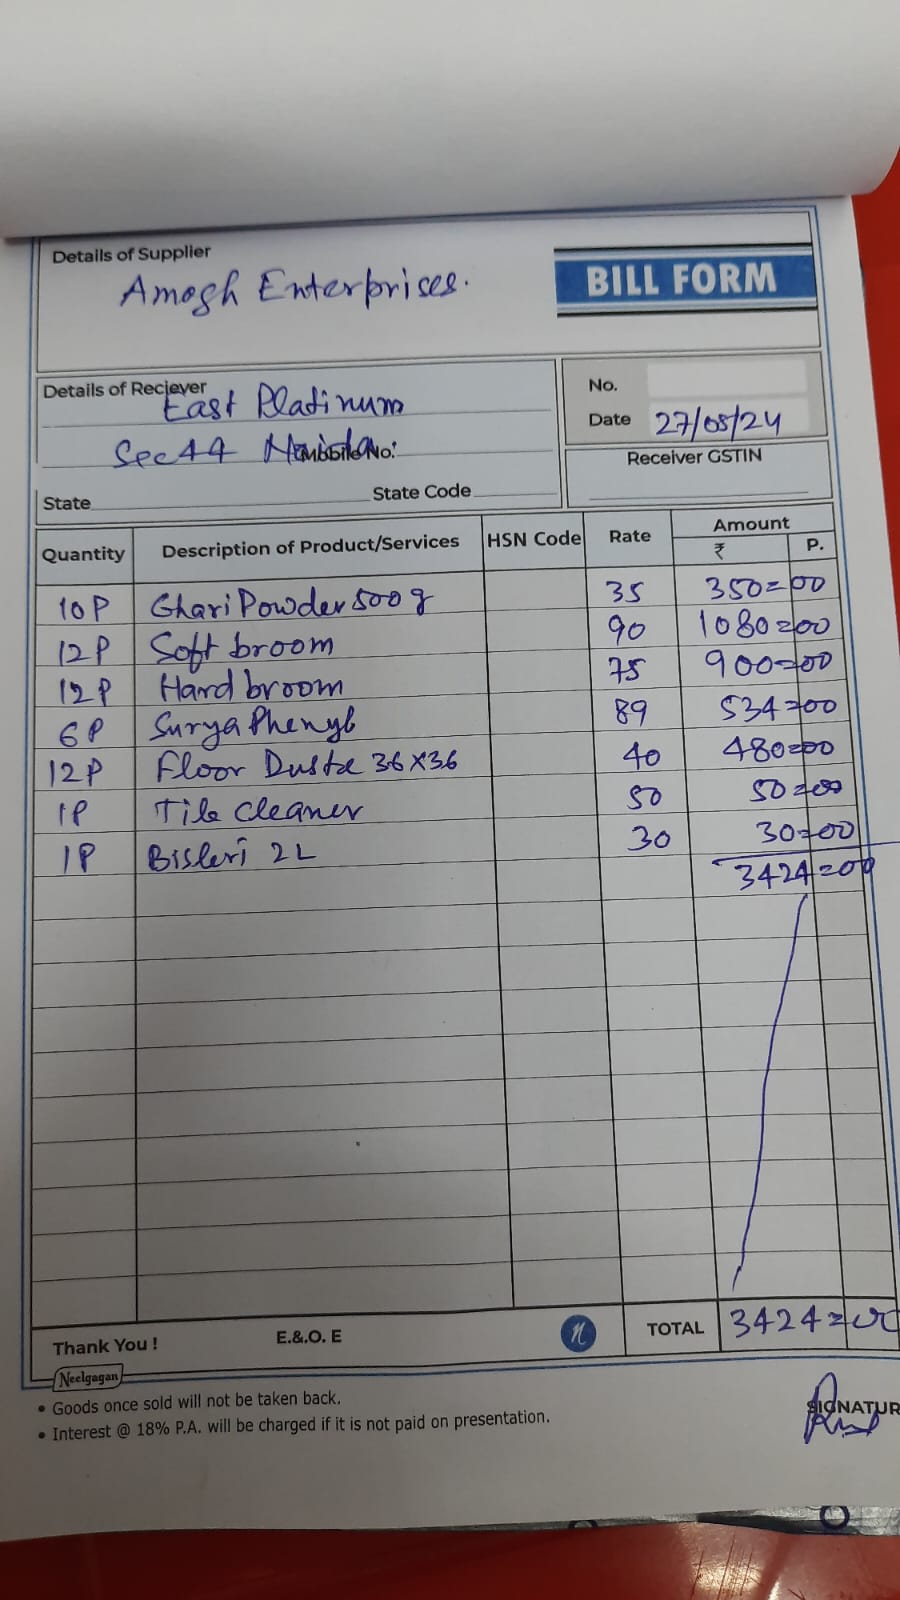 Details of Supplier
Amogh Enterprises.
BILL FORM
Details of Reciever
East Platinum
Sec 44 Noida
Mobile No:
State
State Code
No.
Date 27/05/24
Receiver GSTIN
Quantity Description of Product/Services HSN Code Rate Amount
₹ P.
10P Ghari Powder 500g 35 350=00
12P Soft broom 90 1080=00
12P Hard broom 75 900=00
6P Surya Phenyl 89 534=00
12P Floor Duste 36X36 40 480=00
1P Tile Cleaner 50 50=00
1P Bisleri 2L 30 30=00
3424=00
Thank You !
E.&.O. E
n
TOTAL 3424=00
Neelgagan
• Goods once sold will not be taken back.
• Interest @ 18% P.A. will be charged if it is not paid on presentation.
SIGNATUR